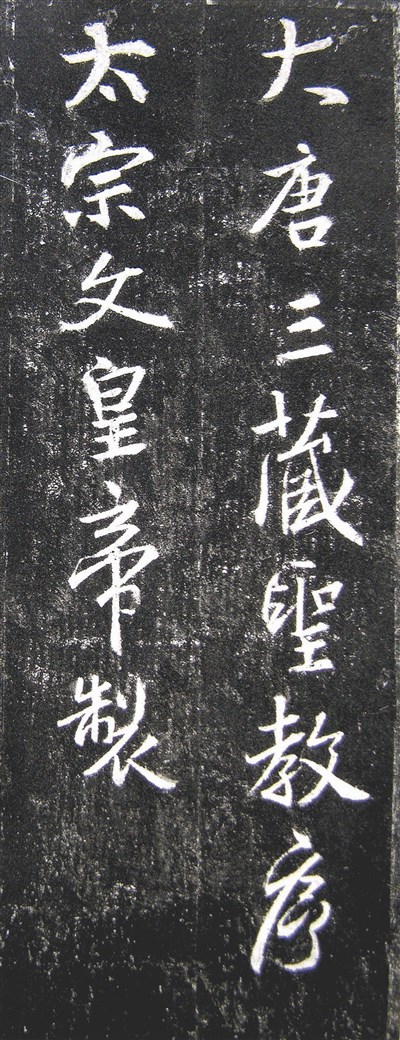 大唐三藏聖教序
太宗文皇帝製